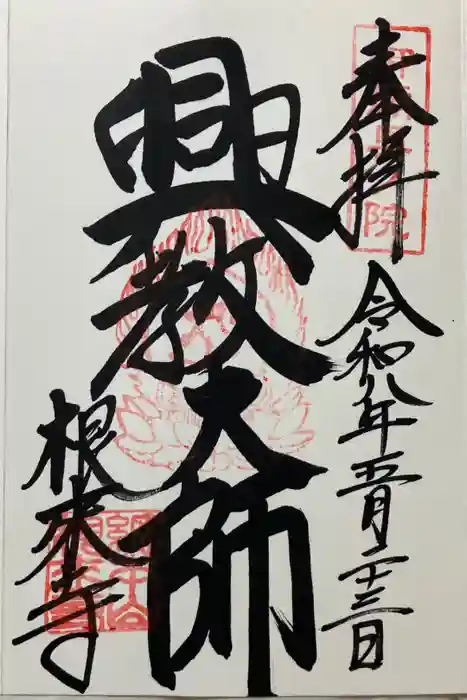 奉拝
令和八年五月二十三日
興教大師
根来寺